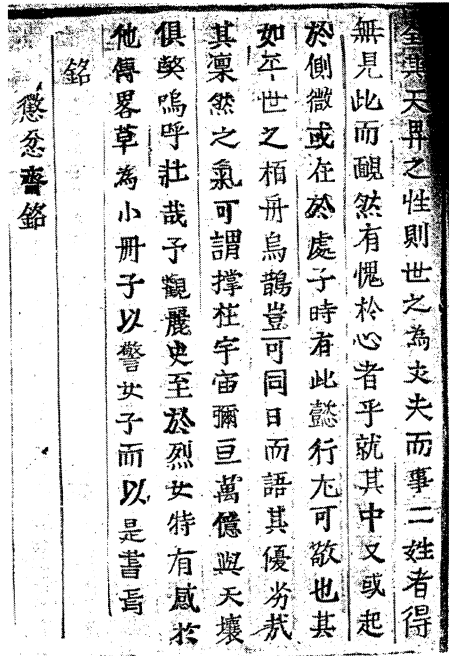 全其天畀之性則世之為丈夫而事二姓者得
無見此而靦然有愧於心者乎就其中又或起
於側微或在於處子時有此懿行尤可敬也其
如卒世之栢舟烏鵲豈可同日而語其優劣哉
其凜然之氣可謂撑柱宇宙彌亘萬億與天壤
俱獘嗚呼壯哉予觀麗史至於烈女特有感於
他傳畧草為小冊子以警女子而以是書焉
銘
懲忿齋銘